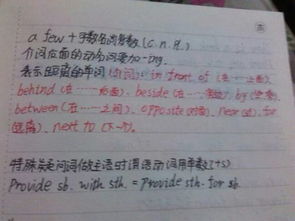 a few + 可数名词复数 (c. n. pl.)
介词后面的动词要加-ing.
表示距离的单词(介词): in front of (在……前面)
behind (在……后面). beside (在……旁边). by (旁).
between (在……之间). opposite (对面). near (近). far
(远离). next to (下一个).
特殊疑问词做主语时谓语动词用单数(+s)
Provide sb. with sth. = Provide sth. for sb.